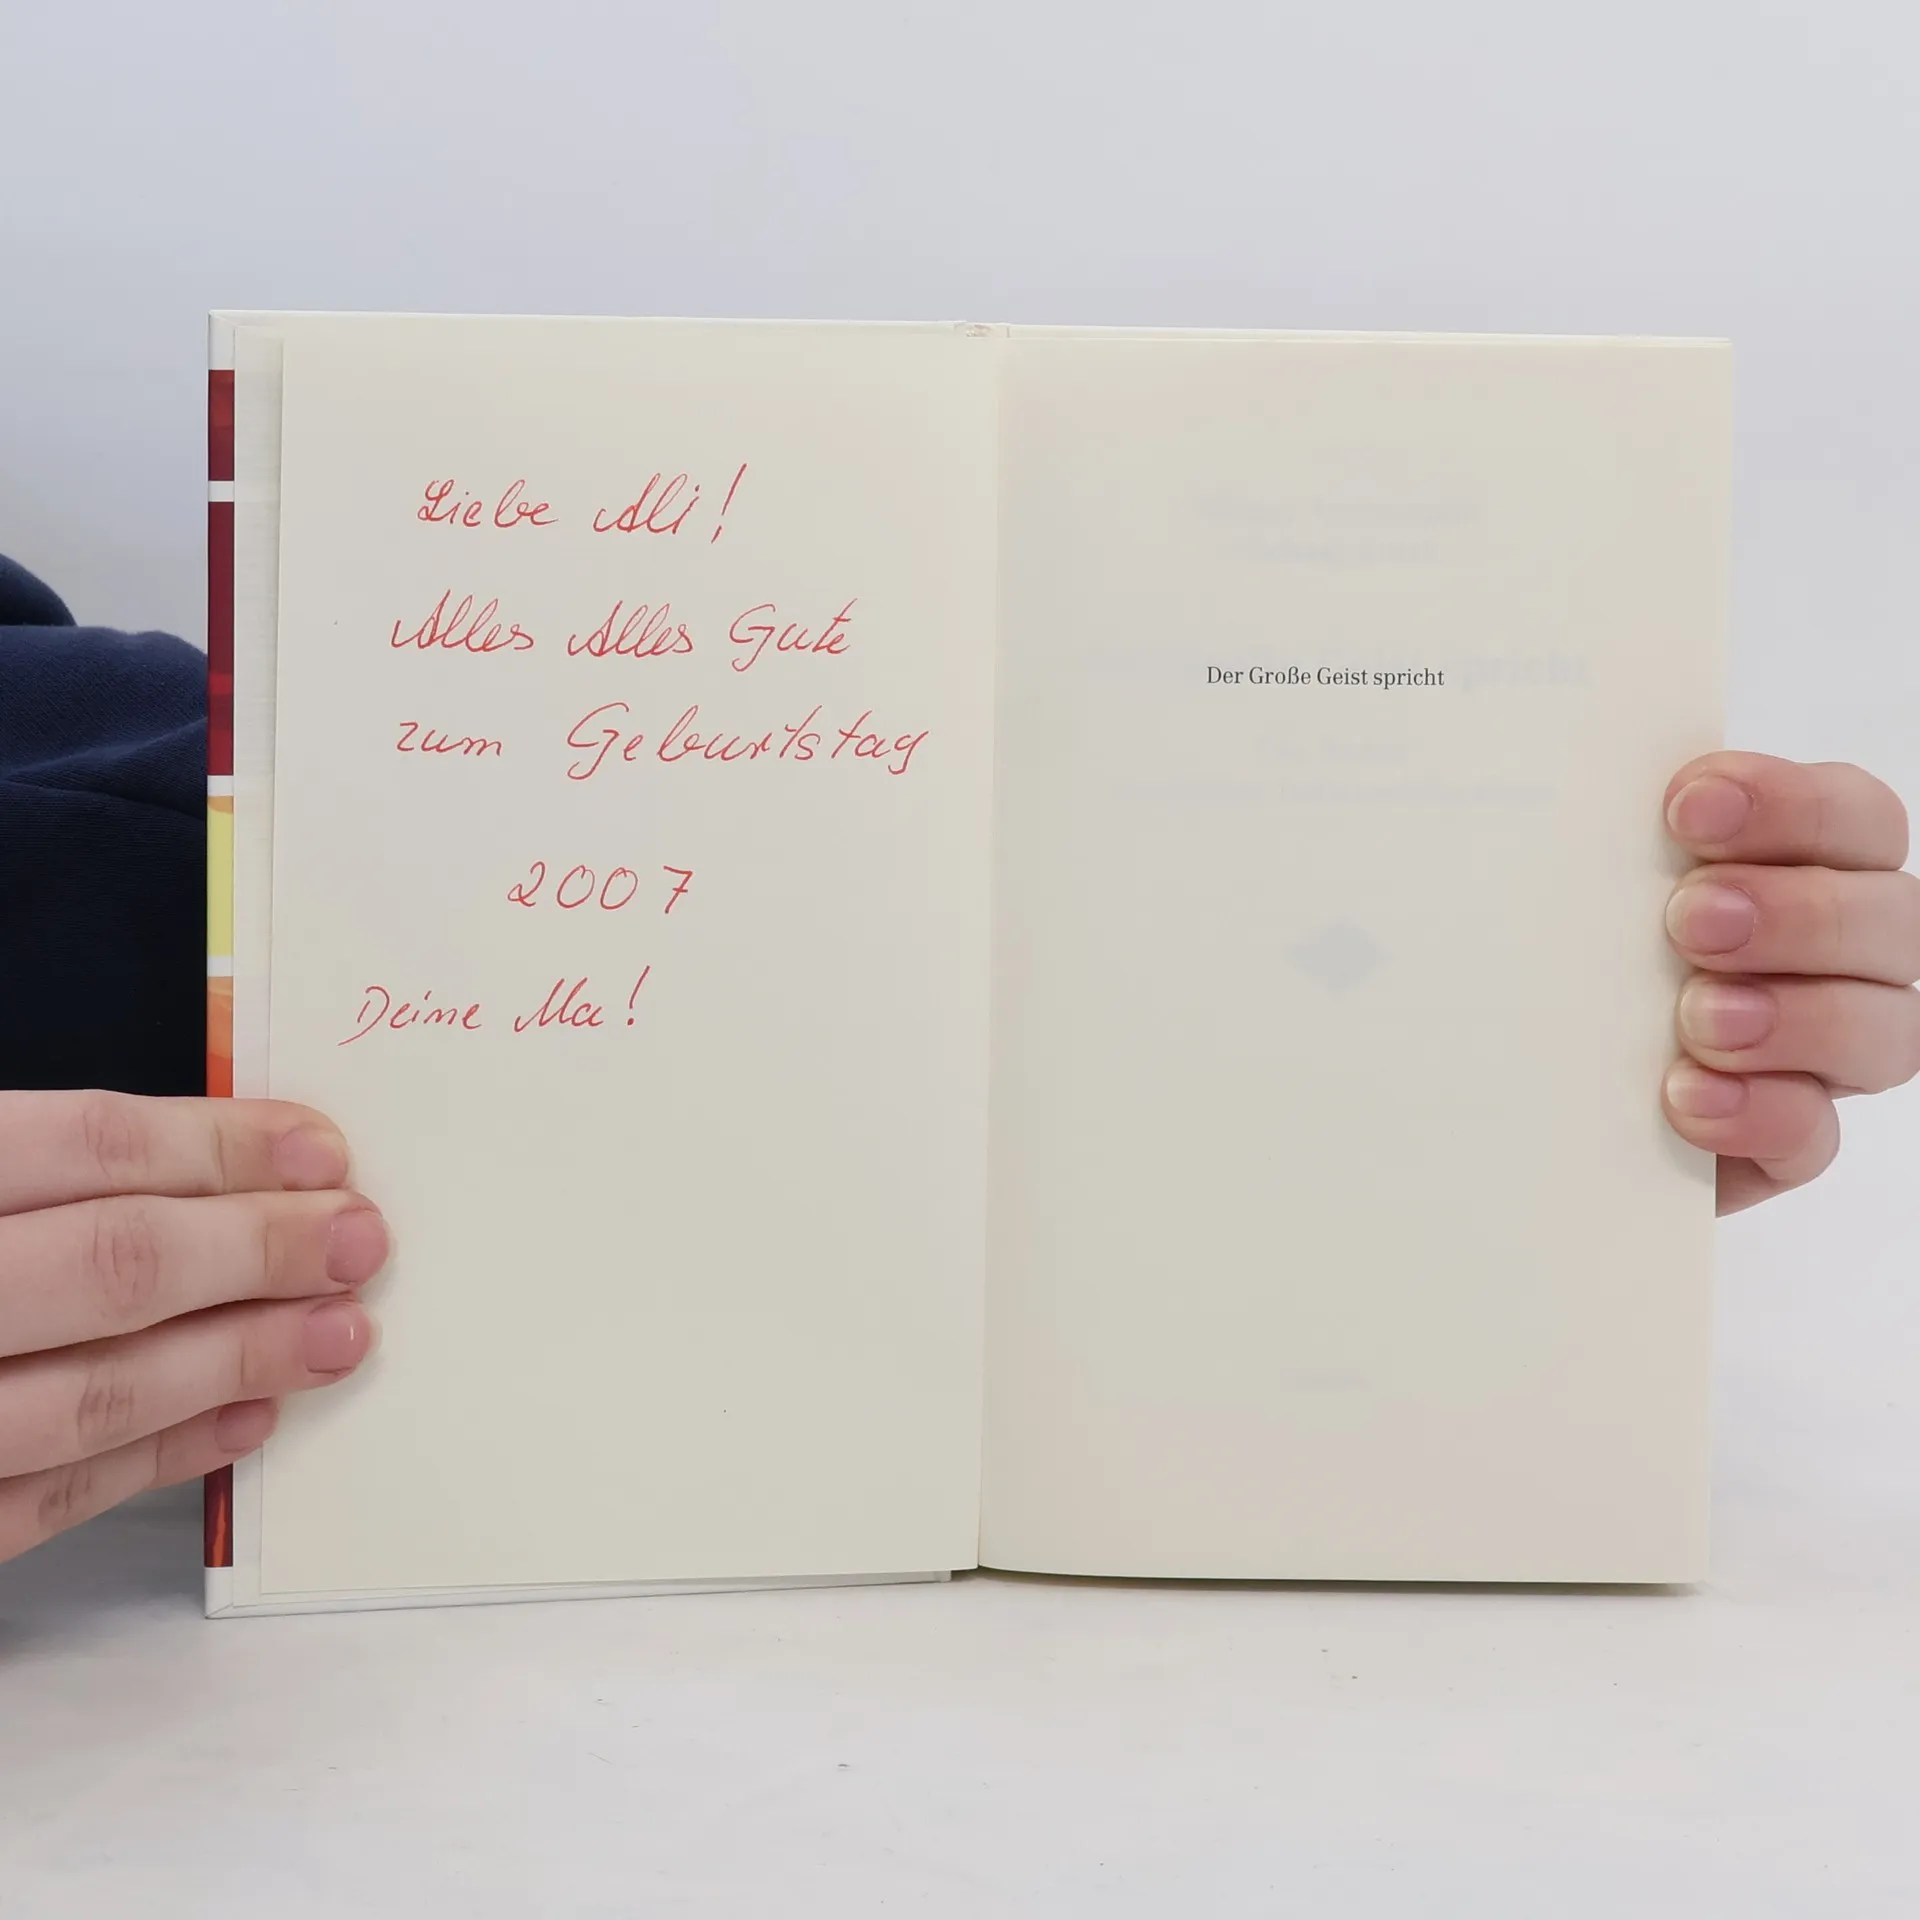 Liebe Ali!
Alles Alles Gute
zum Geburtstag
2007
Deine Ma!
Der Große Geist spricht